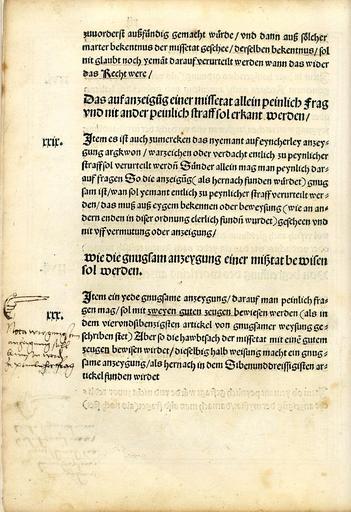 zuuorderst außfündig gemacht würde/ vnd dann auß sölcher
marter bekentnus der missetat geschee/ derselben bekentnus/ sol
nit glaubt noch yemãt darauf verurteilt werden wann das wider
das Recht were/
Das auf anzeigũg einer missetat allein peinlich Frag
vnd nit ander peinlich straff sol erkant werden/
xxix. Item es ist auch zumercken das nyemant auf eyncherley anzey-
gung argkwon/ warzeichen oder verdacht entlich zu peynlicher
straff sol verurteilt werdñ Sünder allein mag man peynlich dar-
auf fragen So die anzeigũg (als hernach funden würdet) gnug
sam ist/ wan sol yemant entlich zu peynlicher straff verurteilt wer-
den/ das muß auß eygem bekennen oder beweysung (wie an an-
dern enden in diser ordnung clerlich fundñ wurdet) gescheen vnd
nit vff vermutung oder anzeigung/
wie die gnugsam anzeygung einer mißtat bewisen
sol werden.
xxx. Item ein yede gnugsame anzeygung/ darauf man peinlich fra-
gen mag/ sol mit zweyen guten zeugen bewisen werden (als in
dem vierondsibenzigsten artickel von gnugsamer weysung ge-
schriben stet) Aber so die hawbtsach der missetat mit einẽ gutem
zeugen bewisen wirdet/ dieselbig halb weisung macht ein gnug-
same anzeygung/ als hernach in dem Sibenunddreissigisten ar-
tickel funden wirdet